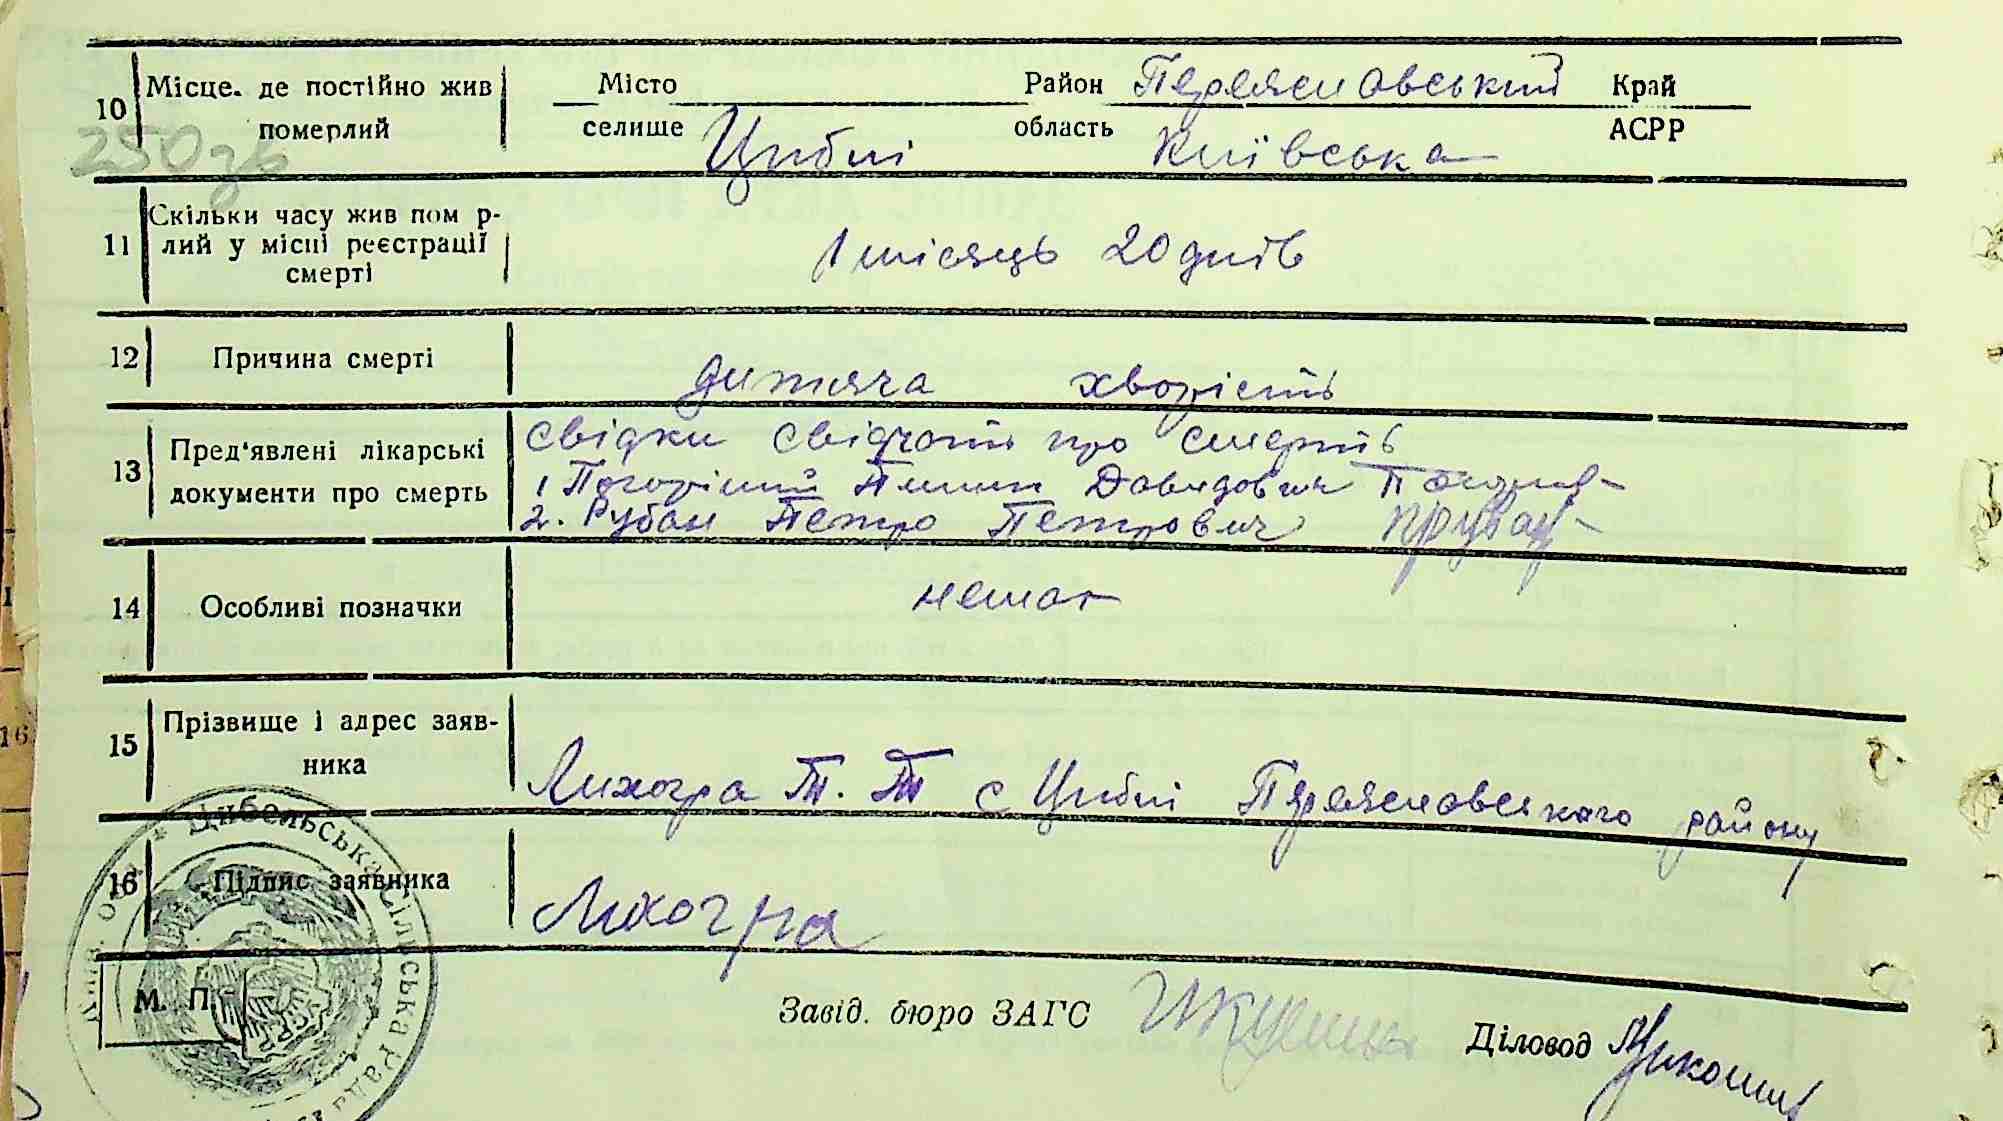 10 Місце. де постійно жив померлий
Місто селище Циблі
Район область Переясловський Київська
Край АСРР
250
11 Скільки часу жив пом р-
лий у місці реєстрації
смерті
1 місяць 20 днів
12 Причина смерті
дитяча хворість
13 Пред'явлені лікарські
документи про смерть
свідки свідчать про смерть
1 Погорілий Давидович
2. Рубан Петро Петрович
14 Особливі позначки
немає
15 Прізвище і адрес заяв-
ника
Лихогра Т. Т с Циблі Переясловського району
16 Підпис заявника
Лихогра
М. П.
Цибельська Сільська Рада
Завід. бюро ЗАГС
Діловод